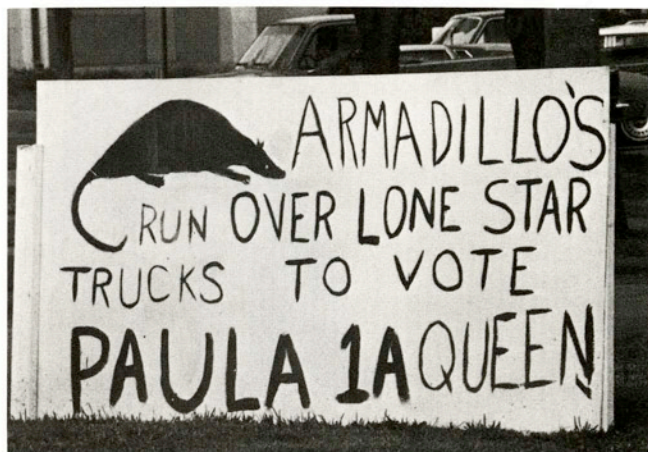 ARMADILLO'S
RUN OVER LONE STAR
TRUCKS TO VOTE
PAULA 1A QUEEN